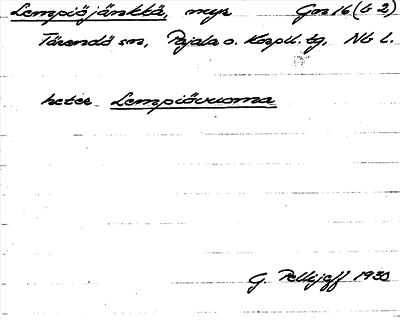 Lempiöjänkkä, myr Gm 16 (b 2)
Tärendö sn, Pajala o. Korpil. tg, Nb l.
heter Lempiövuoma
G. Pellijeff 1930